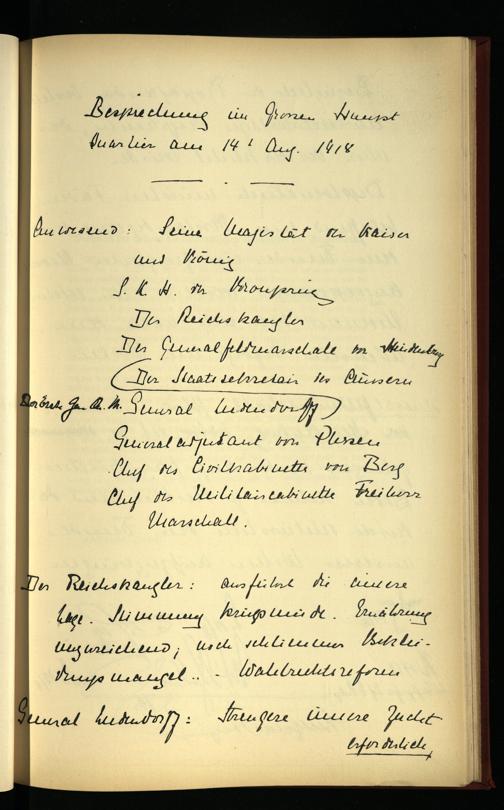 Besprechung im Grossen Haupt
Quartier am 14t Aug. 1918
Anwesend: Seine Majestät der Kaiser
und König
S. K. H. der Kronprinz
Der Reichskanzler
Der Generalfeldmarschall von Hindenburg
Der Staatssekretair des Äussern
General Ludendorff
Generaladjudant von Plessen
Chef des Civilkabinetts von Berg
Chef des Militaircabinetts Freiherr
Marschall.
Der Reichskanzler: ausführt die innere
Lage. Stimmung kriegsmüde. Ernährung
unzureichend, noch schlimmer Beklei-
dungsmangel.. - Wahlrechtsreform
General Ludendorff: Strengere innere Zucht
erforderlich